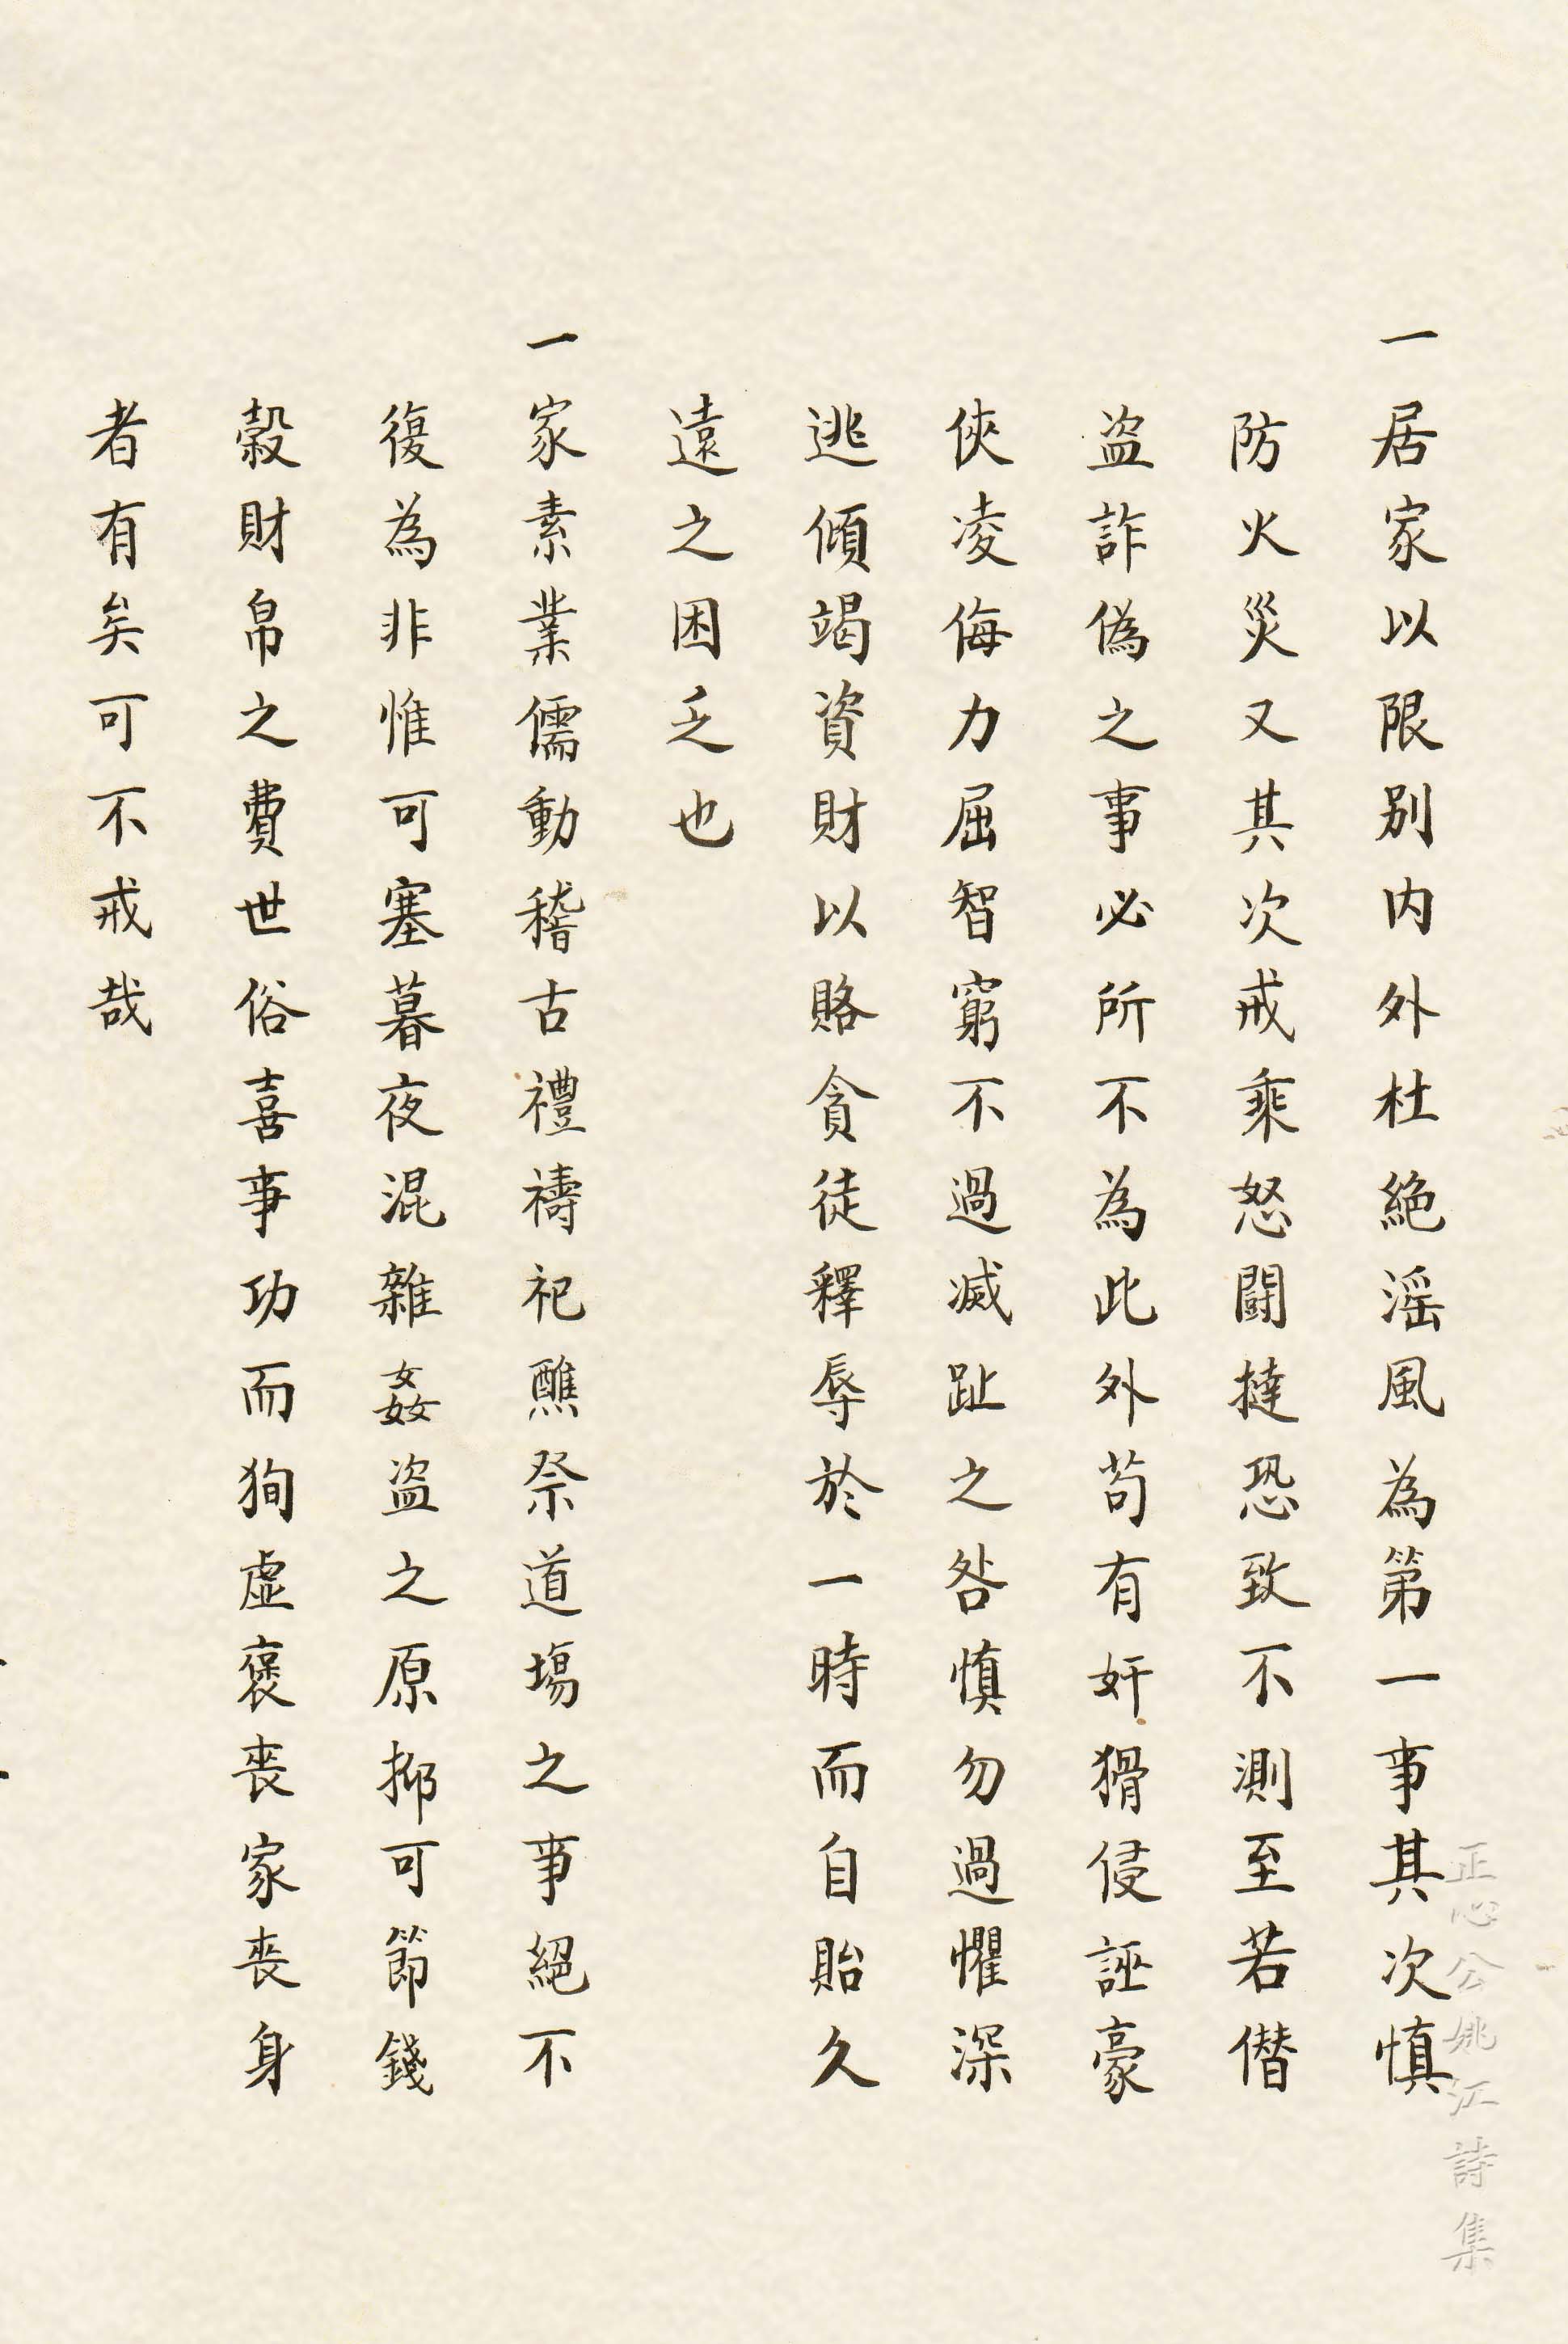 一居家以限别内外杜絶滛風為第一事其次慎
防火災又其次戒乘怒闘撻恐致不測至若僭
盗詐偽之事必所不為此外苟有奸猾侵誣豪
俠凌侮力屈智窮不過滅趾之咎慎勿過懼深
逃傾竭資財以賂貪徒釋辱於一時而自貽久
遠之困乏也
一家素業儒動稽古禮禱祀醮祭道塲之事絕不
復為非惟可塞暮夜混雜姦盗之原抑可節錢
穀財帛之費世俗喜事功而狥虛褒丧家丧身
者有矣可不戒哉
正心公姚江詩集